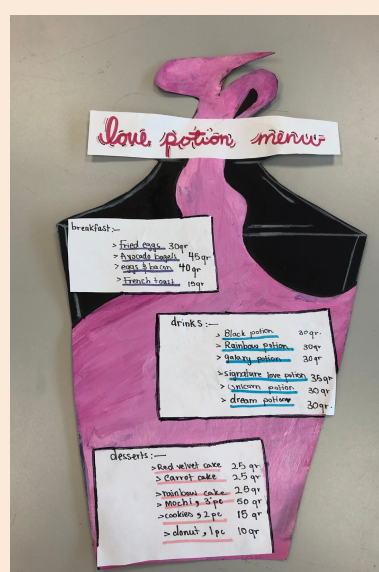 love potion menu
breakfast:-
> fried eggs 30gr
> Avocado bagels 45gr
> eggs & bacon 40gr
> French toast 15gr
drinks:-
> Black potion 30gr.
> Rainbow potion 30gr
> galaxy potion 30gr
> signature love potion 35gr
> unicorn potion 30gr
> dream potion 30gr.
desserts:-
> Red velvet cake 25gr
> Carrot cake 25gr
> rainbow cake 25gr
> Mochi, 3 pc 50gr
> cookies, 2 pc 15gr
> donut, 1 pc 10gr